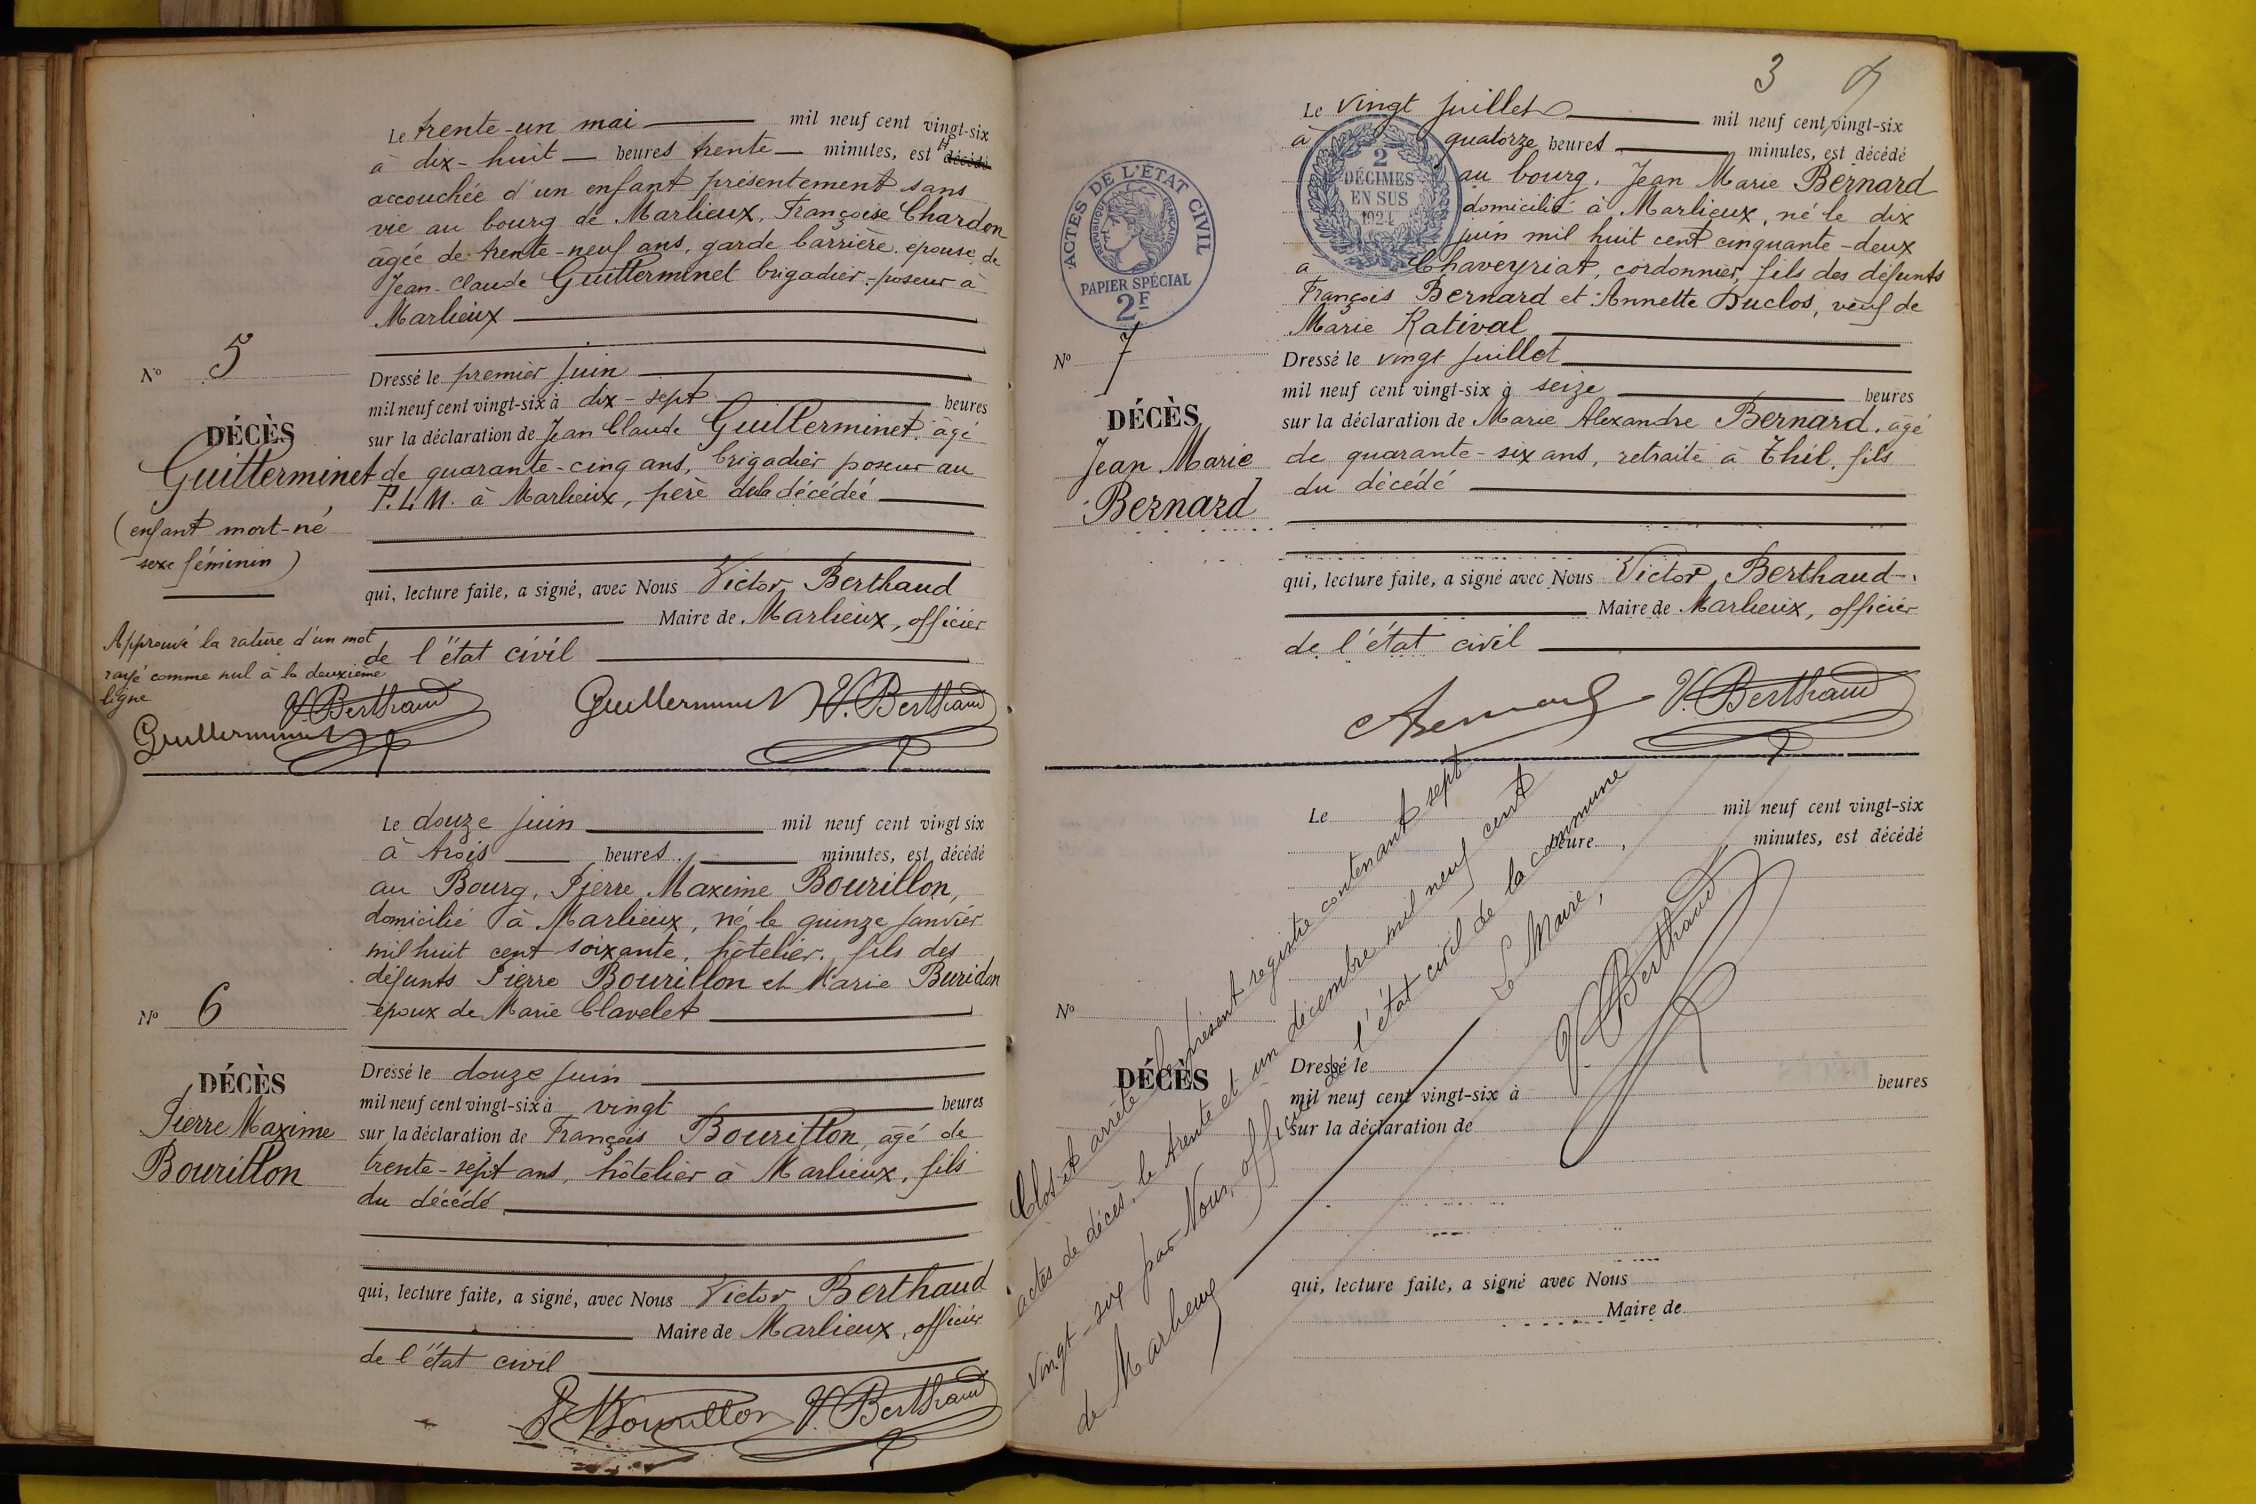 Le trente-un mai mil neuf cent vingt-six
à dix-huit heures trente minutes, est décédé
accouchée d'un enfant présentement sans
vie au bourg de Marlieux, Françoise Chardon
âgée de trente-neuf ans, garde barrière, épouse de
Jean-Claude Guillerminet brigadier-poseur à
Marlieux
N° 5
Dressé le premier juin
mil neuf cent vingt-six à dix-sept heures
DÉCÈS
sur la déclaration de Jean Claude Guillerminet, âgé
Guillerminet
de quarante-cinq ans, brigadier poseur au
P.L.M. à Marlieux, père de la décédée
(enfant mort-né
sexe féminin)
qui, lecture faite, a signé, avec Nous Victor Berthaud
Maire de Marlieux, officier
de l'état civil
Approuvé la rature d'un mot
rayé comme nul à la deuxième
ligne
V. Berthaud
Guillerminet
Guillerminet V. Berthaud
Le douze juin mil neuf cent vingt six
à trois heures minutes, est décédé
au Bourg, Pierre Maxime Bourillon,
domicilié à Marlieux, né le quinze janvier
mil huit cent soixante, hôtelier, fils des
défunts Pierre Bourillon et Marie Buridon
époux de Marie Clavelet
N° 6
Dressé le douze juin
mil neuf cent vingt-six à vingt heures
DÉCÈS
Pierre Maxime
Bourillon
sur la déclaration de François Bourillon, âgé de
trente-sept ans, hôtelier à Marlieux, fils
du décédé
qui, lecture faite, a signé, avec Nous Victor Berthaud
Maire de Marlieux, officier
de l'état civil
Bourillon V. Berthaud
3
Le vingt juillet mil neuf cent vingt-six
à quatorze heures minutes, est décédé
au bourg, Jean Marie Bernard
domicilié à Marlieux, né le dix
juin mil huit cent cinquante-deux
à Chaveyriat, cordonnier, fils des défunts
François Bernard et Annette Duclos, veuf de
Marie Rativat
ACTES DE L'ÉTAT CIVIL
RÉPUBLIQUE FRANÇAISE
PAPIER SPÉCIAL
2F
2
DÉCIMES
EN SUS
1924
N° 7
Dressé le vingt juillet
mil neuf cent vingt-six à seize heures
DÉCÈS
Jean Marie
Bernard
sur la déclaration de Marie Alexandre Bernard, âgé
de quarante-six ans, retraité à Thil, fils
du décédé
qui, lecture faite, a signé avec Nous Victor Berthaud
Maire de Marlieux, officier
de l'état civil
Bernard V. Berthaud
Le mil neuf cent vingt-six
heure minutes, est décédé
N°
DÉCÈS
Dressé le
mil neuf cent vingt-six à heures
sur la déclaration de
qui, lecture faite, a signé avec Nous
Maire de
Clos et arrêté le présent registre contenant sept
actes de décès, le trente et un décembre mil neuf cent
vingt-six par Nous, officier de l'état civil de la commune
de Marlieux
Le Maire,
V. Berthaud